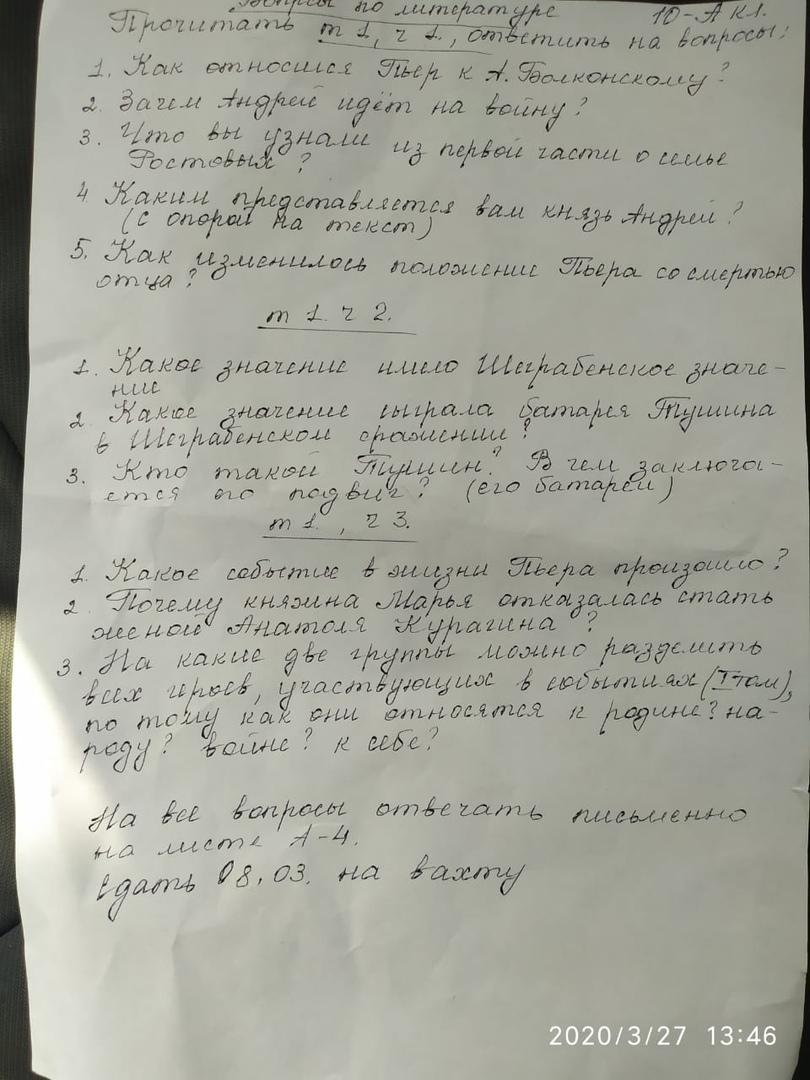 Вопросы по литературе 10-А кл.
Прочитать т 1, ч 1., ответить на вопросы:
1. Как относился Пьер к А. Болконскому?
2. Зачем Андрей идёт на войну?
3. Что вы узнали из первой части о семье
Ростовых?
4. Каким представляется вам князь Андрей?
(с опорой на текст)
5. Как изменилось положение Пьера со смертью
отца?
т 1. ч 2.
1. Какое значение имело Шеграбенское значе-
ние
2. Какое значение сыграла батарея Тушина
в Шеграбенском сражении?
3. Кто такой Тушин? В чем заключа-
ется его подвиг? (его батареи)
т 1. , ч 3.
1. Какое событие в жизни Пьера произошло?
2. Почему княжна Марья отказалась стать
женой Анатоля Курагина?
3. На какие две группы можно разделить
всех героев, участвующих в событиях (I том),
по тому как они относятся к родине? на-
роду? войне? к себе?
На все вопросы отвечать письменно
на листе А-4.
Сдать 08.03. на вахту
2020/3/27 13:46